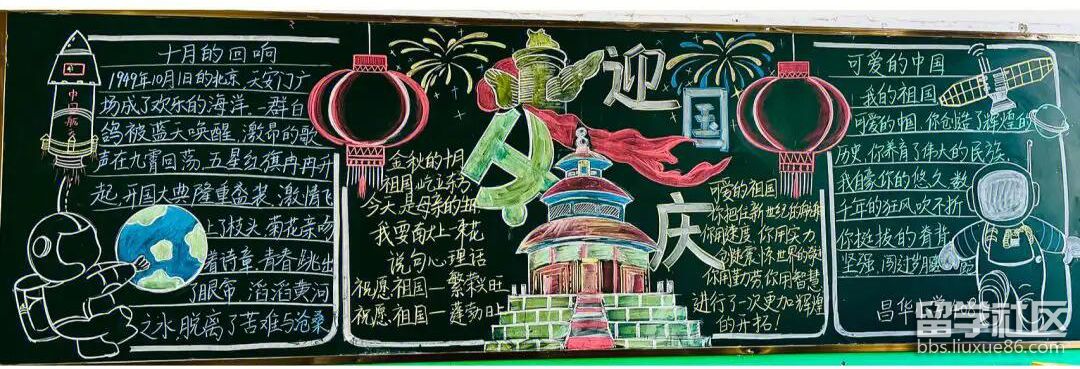 十月的回响
1949年10月1日的北京天安门广
场成了欢乐的海洋.一群白
鸽被蓝天唤醒,激昂的歌
声在九霄回荡,五星红旗冉冉升
起,开国大典隆重盛装,激情飞
上枝头菊花亲吻
着诗章,青春跳出
了眼帘,滔滔黄河
之水,脱离了苦难与沧桑
中国航天
金秋的十月
祖国屹立东方
今天是母亲的
我要献上一束花
说句心理话
祝愿祖国一繁荣兴旺
祝愿祖国一蓬勃日上
迎国庆
可爱的祖国
你把住新世纪的
你用速度,你用实力
世界的
你用勤劳,你用智慧
进行了一次更加辉煌
的开拓!
可爱的中国
我的祖国
可爱的中国,你创造了辉煌的
历史,你养育了伟大的民族,
我自豪你的悠久,数
千年的狂风吹不折
你挺拔的脊背
坚强,闯过岁月
昌华
留学社区
bbs.liuxue86.com